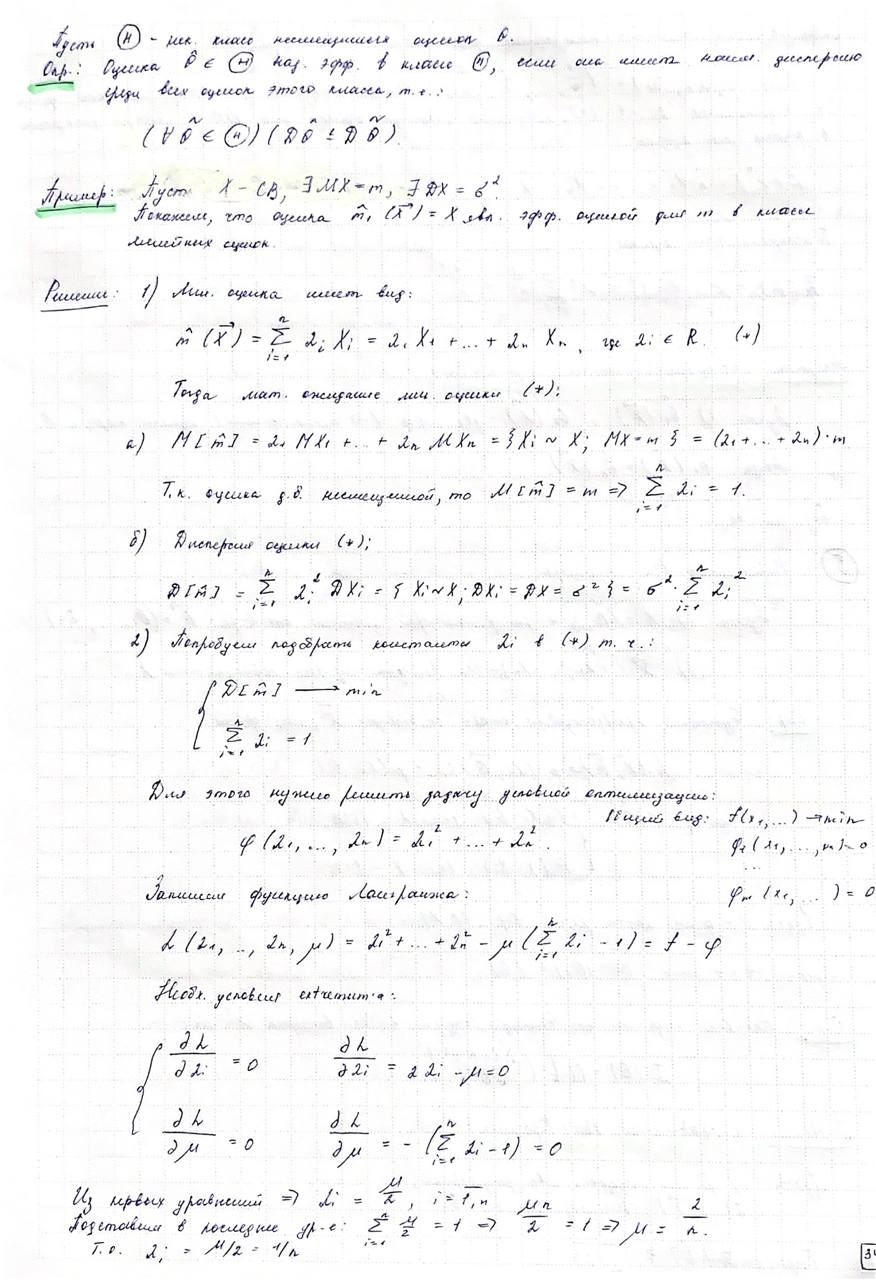 Пусть Ⓗ - нек. класс несмещенных оценок θ.
Опр.: Оценка θ̂ ∈ Ⓗ наз. эфф. в классе Ⓗ, если она имеет наим. дисперсию
среди всех оценок этого класса, т.е.:
(∀ θ̃ ∈ Ⓗ) (Dθ̂ ≤ Dθ̃).
Пример: Пусть X - СВ, ∃ MX = m, ∃ DX = σ².
Покажем, что оценка m̂₁(X⃗) = X явл. эфф. оценкой для m в классе
линейных оценок.
Решение: 1) Лин. оценка имеет вид:
m̂(X⃗) = Σ_{i=1}^{n} λi Xi = λ₁ X₁ + ... + λn Xn, где λi ∈ R. (*)
Тогда мат. ожидание лин. оценки (*):
а) M[m̂] = λ₁ MX₁ + ... + λn MXn = {Xi ~ X; MX = m} = (λ₁ + ... + λn)·m
Т.к. оценка д.б. несмещенной, то M[m̂] = m => Σ_{i=1}^{n} λi = 1.
б) Дисперсия оценки (*):
D[m̂] = Σ_{i=1}^{n} λi² DXi = {Xi ~ X; DXi = DX = σ²} = σ² · Σ_{i=1}^{n} λi²
2) Попробуем подобрать константы λi в (*) т.ч.:
{ D[m̂] → min
Σ_{i=1}^{n} λi = 1
Для этого нужно решить задачу условной оптимизации:
Общий вид: f(x₁,...) → min
φ(λ₁, ..., λn) = λ₁² + ... + λn².
φ₁(x₁, ..., xn) = 0
...
φm(x₁, ...) = 0
Запишем функцию Лагранжа:
L(λ₁, .., λn, μ) = λ₁² + ... + λn² - μ(Σ_{i=1}^{n} λi - 1) = f - φ
Необх. условия extremum-a:
{ ∂L/∂λi = 0 ∂L/∂λi = 2λi - μ = 0
∂L/∂μ = 0 ∂L/∂μ = -(Σ_{i=1}^{n} λi - 1) = 0
Из первых уравнений => λi = μ/2, i = 1,n
Подставим в последнее ур-е: Σ_{i=1}^{n} μ/2 = 1 => μn/2 = 1 => μ = 2/n.
Т.о. λi = μ/2 = 1/n